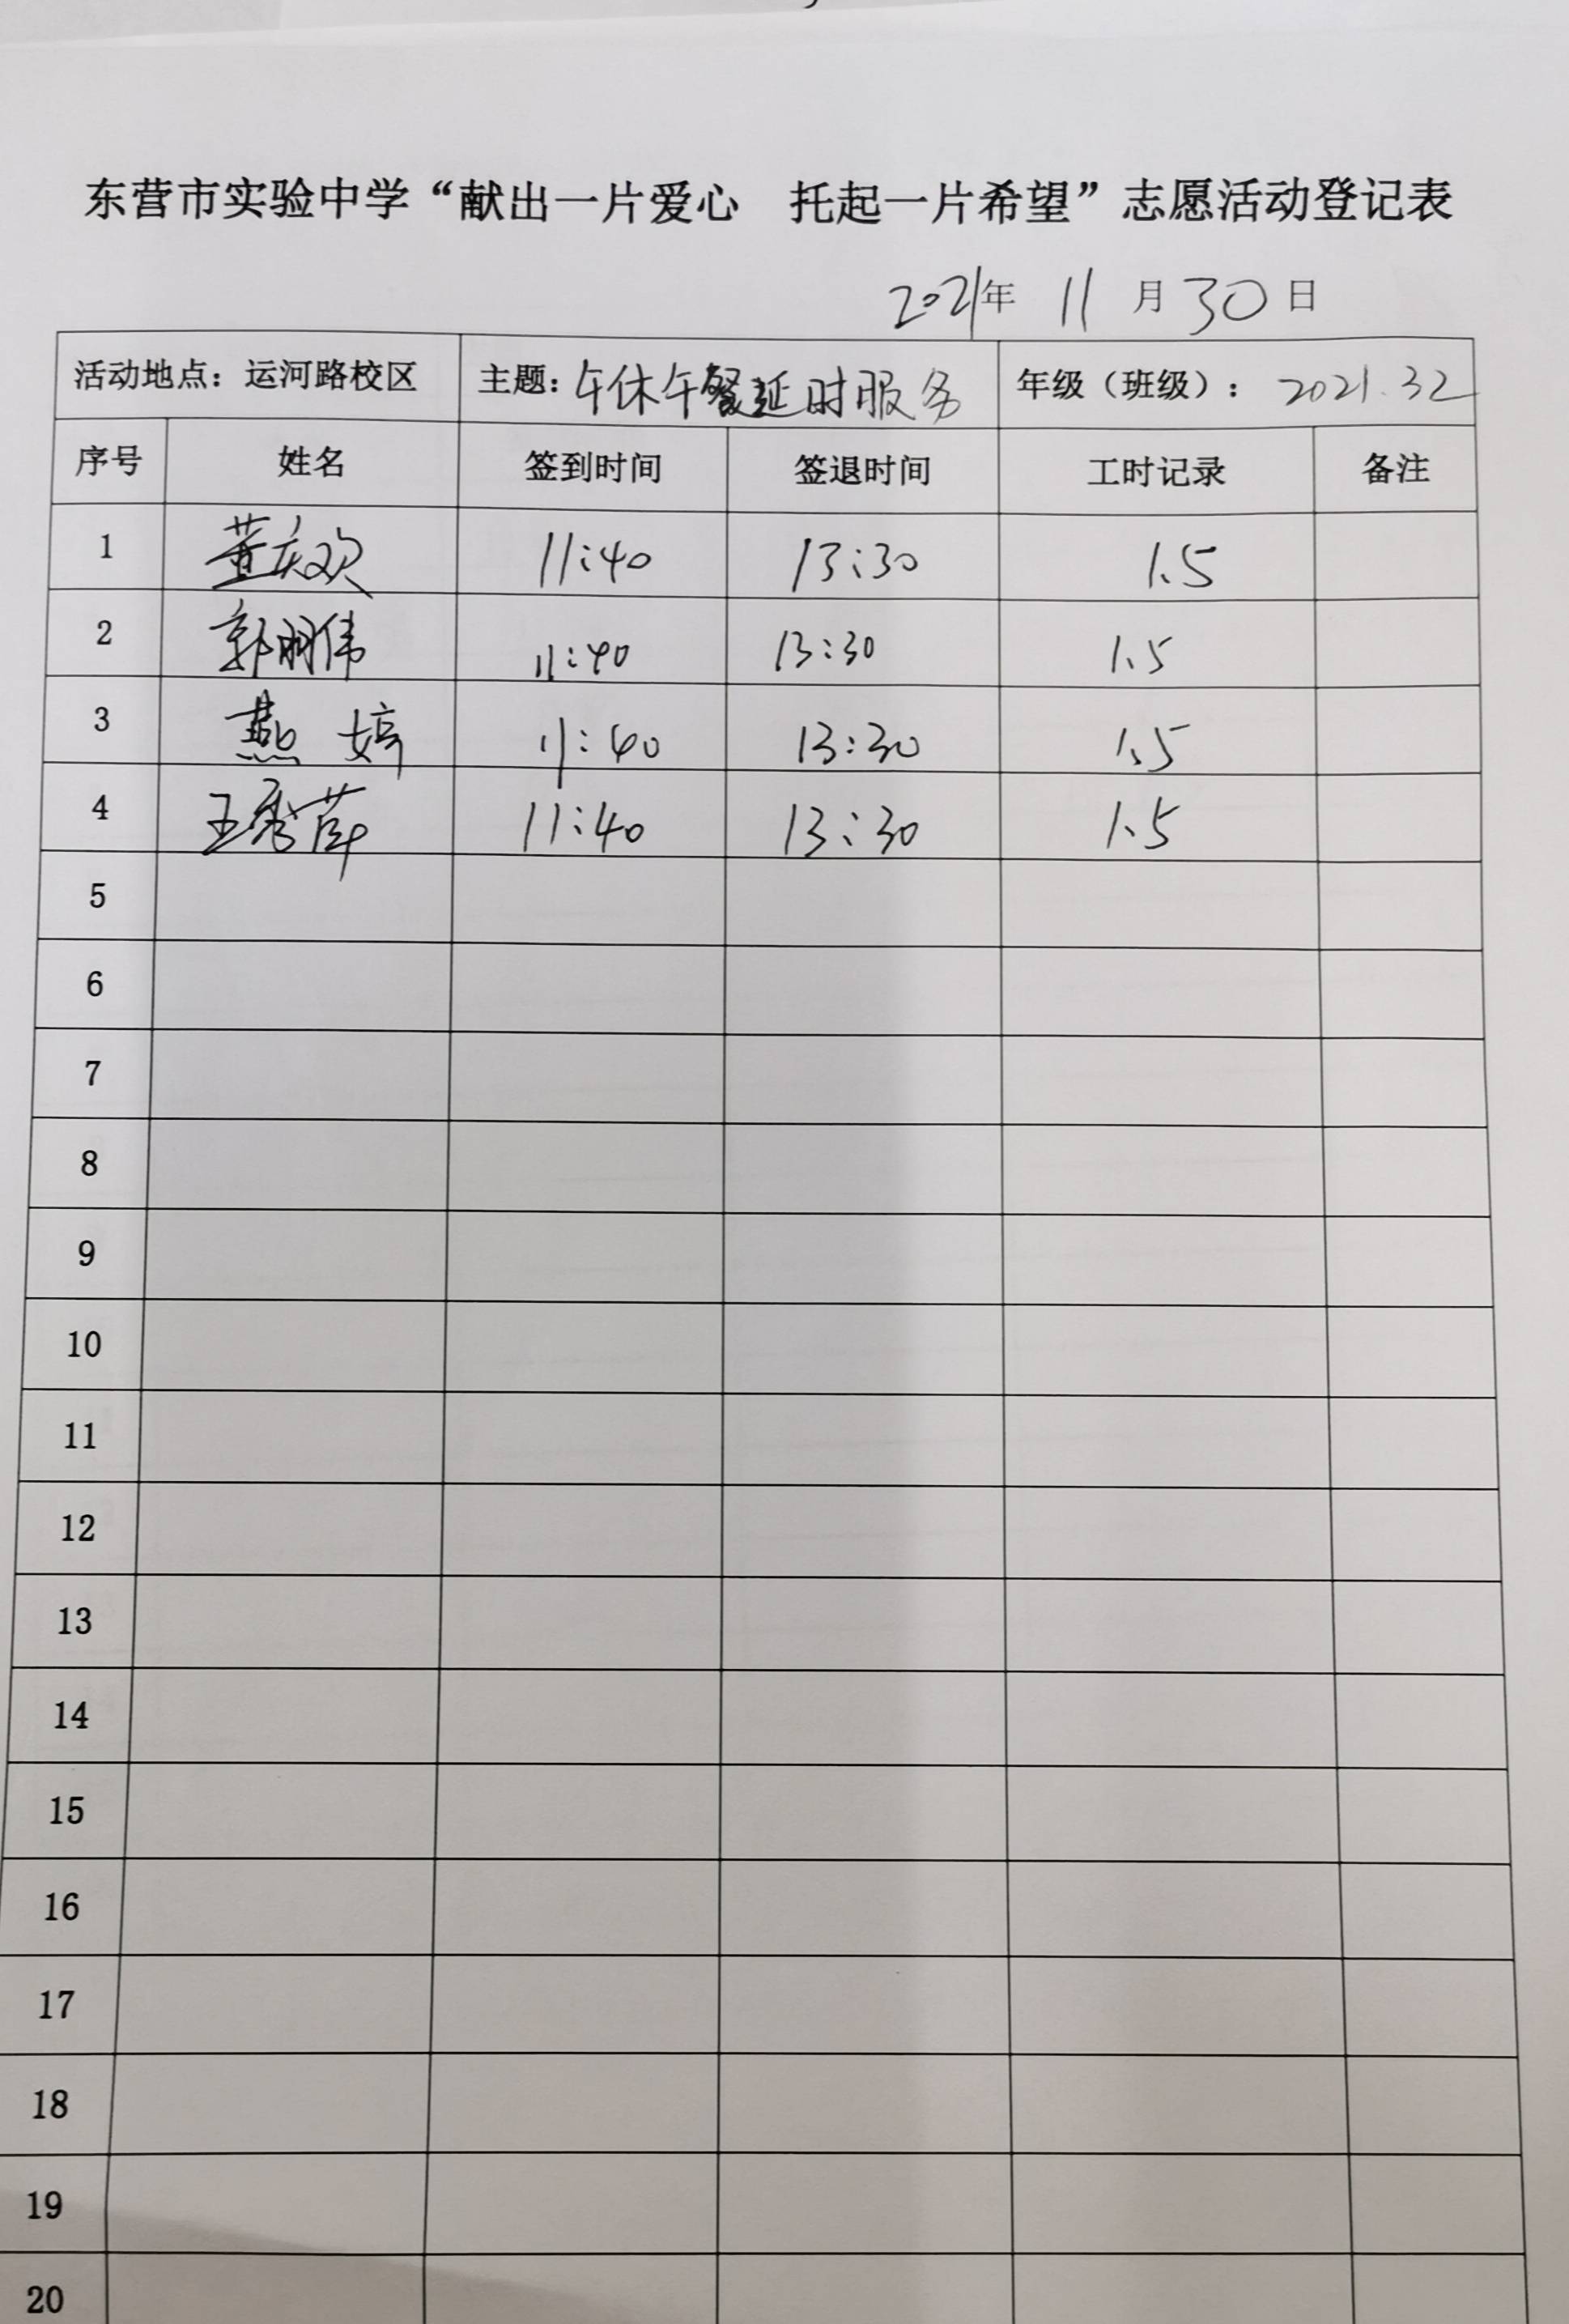 东营市实验中学“献出一片爱心 托起一片希望”志愿活动登记表
2021年 11 月 30 日
活动地点：运河路校区 主题：午休午餐延时服务 年级（班级）：2021.32
序号 姓名 签到时间 签退时间 工时记录 备注
1 董庆欢 11:40 13:30 1.5
2 郭明伟 11:40 13:30 1.5
3 燕婷 11:40 13:30 1.5
4 王秀萍 11:40 13:30 1.5
5
6
7
8
9
10
11
12
13
14
15
16
17
18
19
20